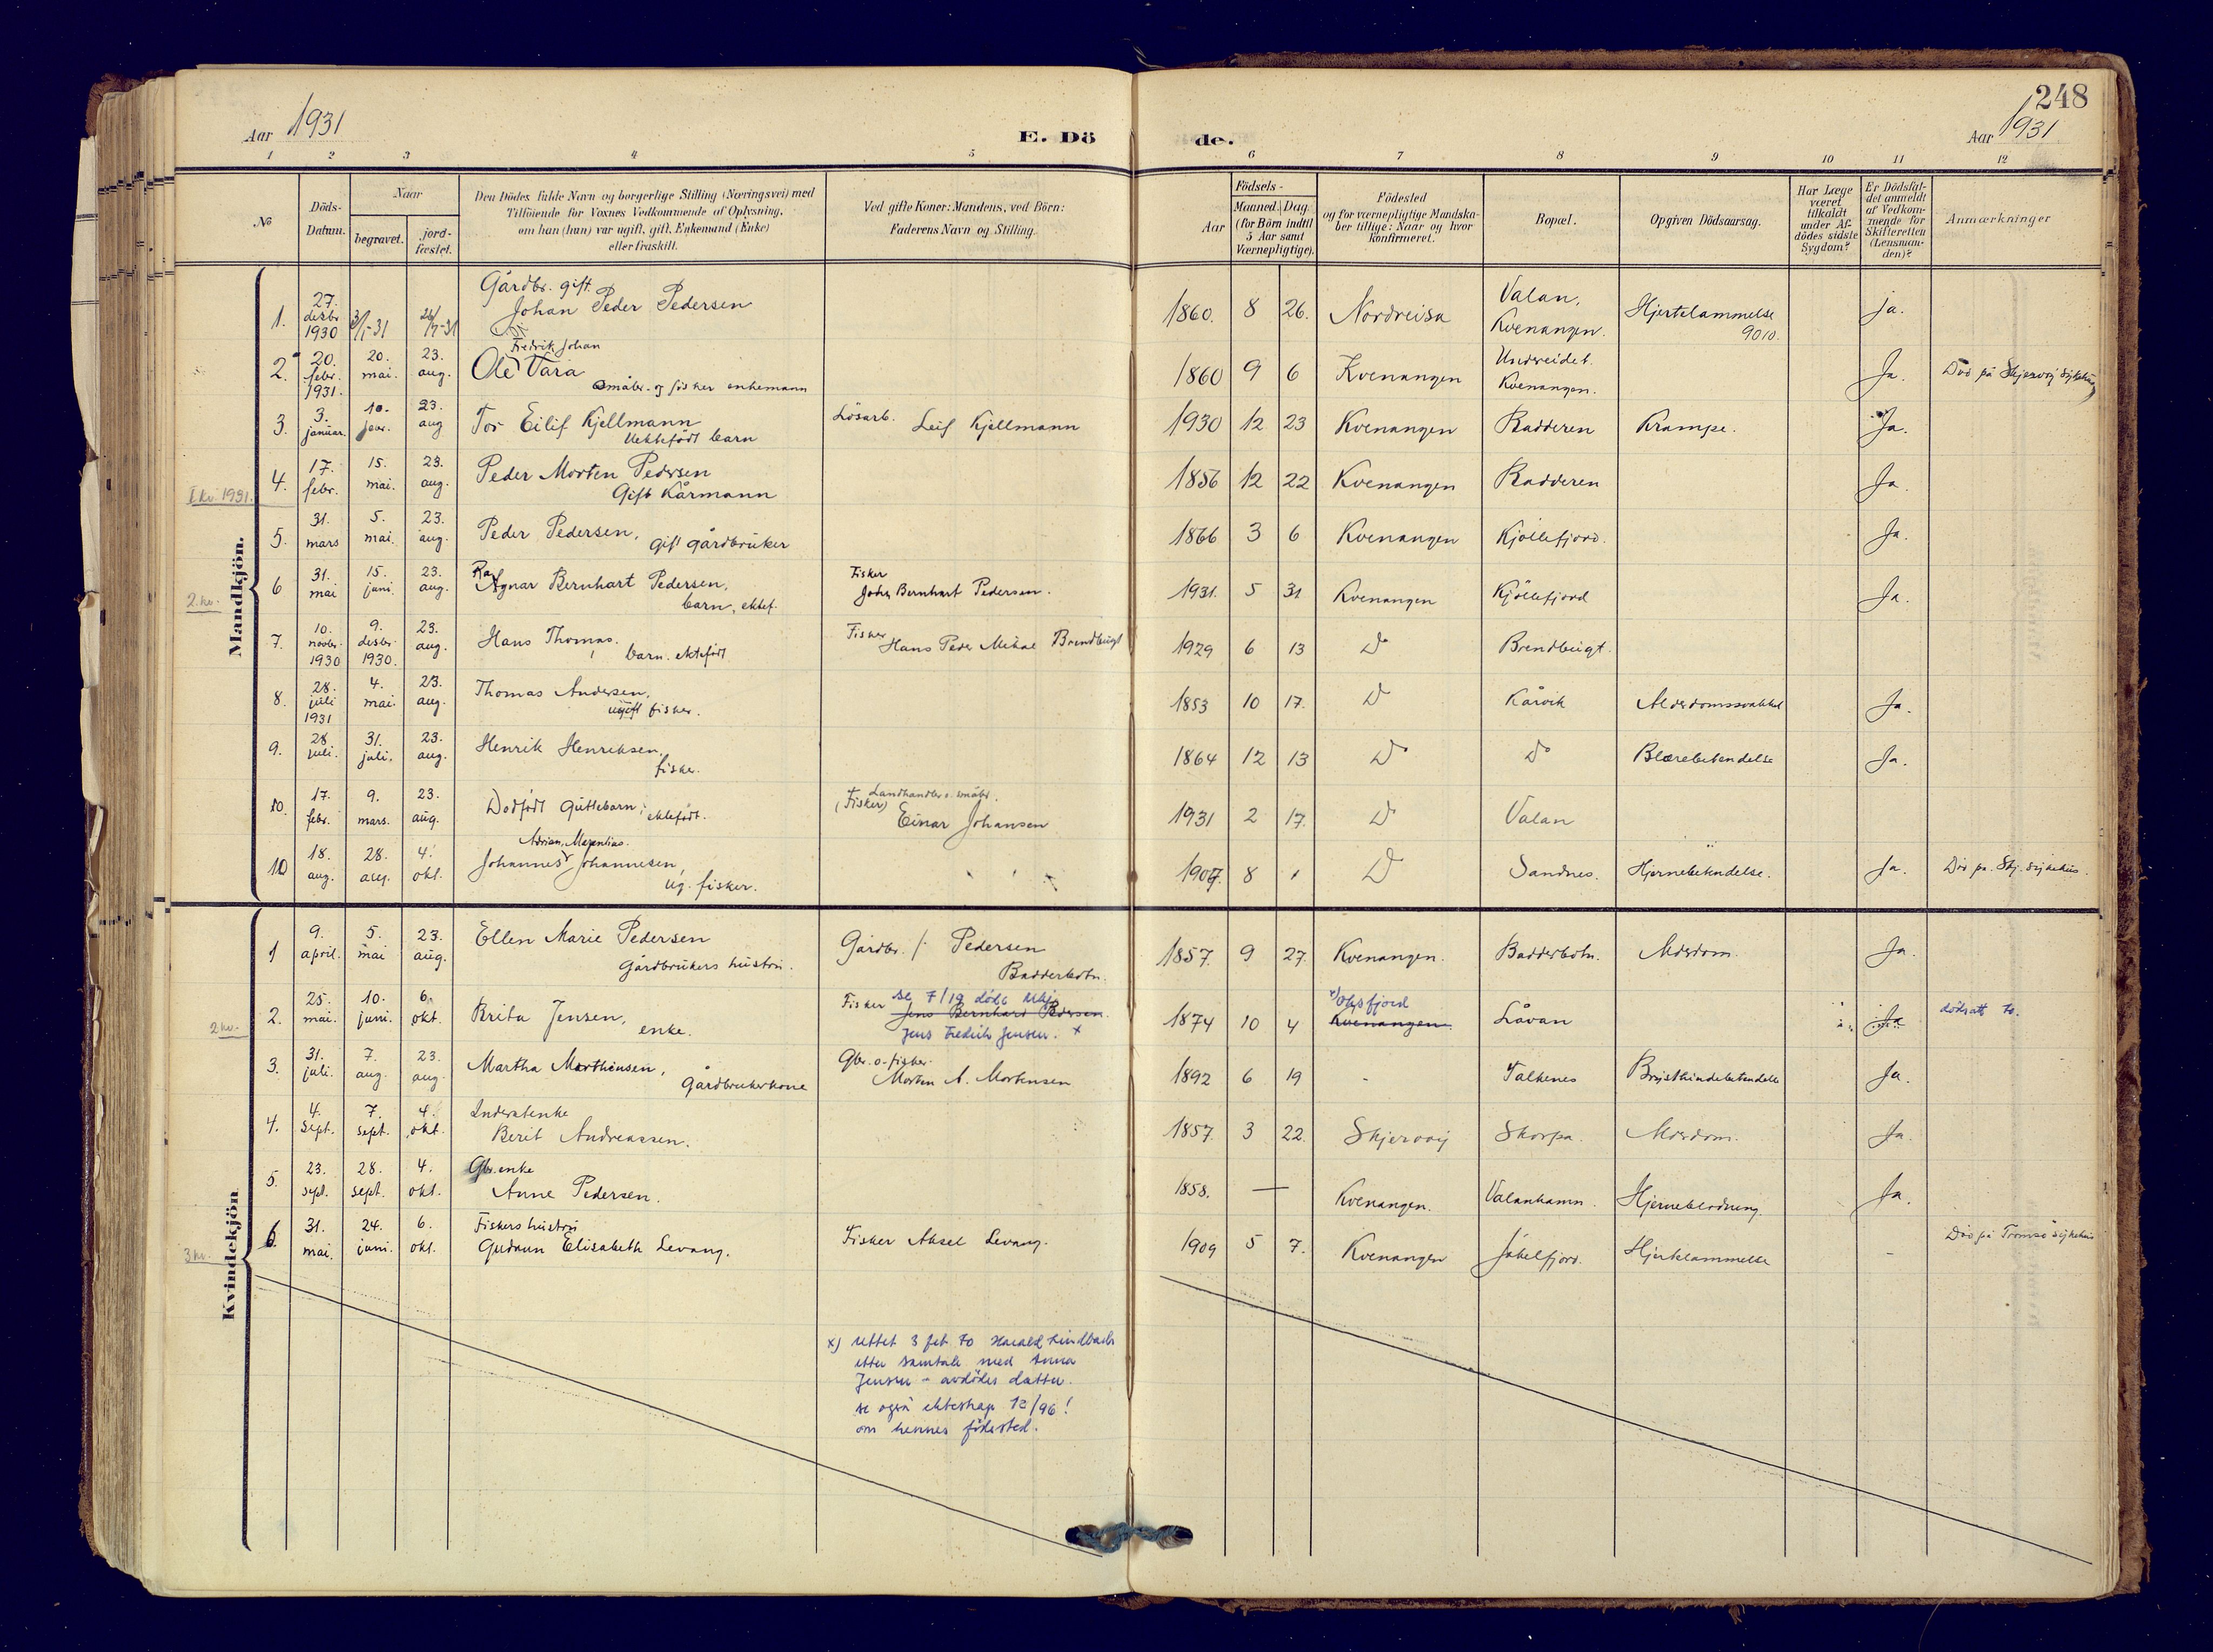 248
Aar 1931
E. Dö
de.
Aar 1931
1 2 3 4 5 6 7 8 9 10 11 12
No
Döds-
Datum.
Naar
begravet.
jord-
fæstet.
Den Dödes fulde Navn og borgerlige Stilling (Næringsvei) med
Tilföiende for Voxnes Vedkommende af Oplysning,
om han (hun) var ugift, gift, Enkemand (Enke)
eller fraskilt.
Ved gifte Koner: Mandens, ved Börn:
Faderens Navn og Stilling.
Födsels-
Aar
Maaned. Dag
(for Börn indtil
5 Aar samt
Værnepligtige).
Födested
og for værnepligtige Mandska-
ber tillige: Naar og hvor
konfirmeret.
Bopæl.
Opgiven Dödsaarsag.
Har Læge
været
tilkaldt
under Af-
dödes sidste
Sygdom?
Er Dödsfal-
det anmeldt
af Vedkom-
mende for
Skifteretten
(Lensman-
den)?
Anmærkninger
Mandkjön.
1. 27. desbr 1930 3/1-31 Gårdbr. gift.
Johan Peder Pedersen 1860. 8 26. Nordreisa Valan, Kvenangen. Hjertelammelse 9010. ja.
2. 20. febr. 1931. 20. mai. 23. aug. Fredrik Johan
Ole Vara
småbr. og fisker enkemann 1860 9 6 Kvenangen Undereidet. Kvenangen. Ja. Död på Skjervöy Sykehus
3. 3. januar. 10. 23. aug Tor Eilif Kjellmann
Uektefödt barn Lösarb. Leif Kjellmann 1930 12 23 Kvenangen Badderen Krampe. Ja.
I kv. 1931.
4. 17. febr. 15. mai. 23. aug. Peder Morten Pedersen
Gift Kårmann 1856 12 22 Kvenangen Badderen Ja.
5. 31. mars 5. mai. 23. aug. Peder Pedersen, gift gårdbruker 1866 3 6 Kvenangen Kjöllefjord. Ja.
2. kv.
6 31. mai 15. juni. 23. aug. Ragnar Bernhart Pedersen,
barn, ektef. Fisker
Johs Bernhart Pedersen. 1931. 5 31 Kvenangen Kjöllefjord Ja.
7. 10. novbr. 1930 9. desbr. 1930. 23. aug. Hans Thomas.
barn. ektefödt Fisker Hans Peder Mikal Brendbugt 1929 6 13 Do Brendbugt.
8. 28. juli 1931 4. mai. 23. aug. Thomas Andersen,
ugift fisker. 1853 10 17. Do Kåvik Alderdomssvakhet Ja.
9. 28 juli. 31. juli. 23. aug. Henrik Henriksen,
fisker. 1864 12 13 Do Do Blærebetendelse Ja.
10. 17. febr. 9. mars. 23. aug. Dödfödt guttebarn, ektefödt. Landhandler o. småbr.
(Fisker) Einar Johansen 1931 2 17. Do Valan
10 18. aug. 28. aug. 4. okt. Adrian,
Johannes Johannesen,
ug. fisker. 1907. 8 Do Sandnes. Hjernebetendelse. Ja. Död på Skj. sykehus.
Kvindekjön
1 9. april. 5. mai 23. aug. Ellen Marie Pedersen
Gårdbrukers hustru. Gårdbr. Pedersen
Badderbotn. 1857. 9 27. Kvenangen. Badderbotn. Alderdom. Ja.
2 kv.
2. 25. mai. 10. juni. 6. okt. Brita Jensen, enke. Fisker se 7/19 döde
Jens Bernhard Pedersen.
Jens Fredrik Jensen. x 1874 10 4 x) Oksfjord
Kvenangen. Låvan Ja dödsatt 70.
3. 31. juli. 7. aug. 23. aug Martha Marthinsen,
Gårdbrukerkone Gbr. o. fisker.
Morten A. Mortensen 1892 6 19 - Talknes Brysthindebetendelse Ja.
4. 4. sept. 7. sept. 4. okt. Inderstenke
Berit Andreassen. 1857. 3 22. Skjervöy Skorpa. Alderdom. Ja.
5. 23. sept. 28. sept. 4. okt. Gbr. enke
Anne Pedersen. 1858. — Kvenangen. Valanhamn. Hjerneblödning. Ja.
3 kv.
6. 31. mai. 24. juni. 6. okt. Fiskers hustru
Gudrun Elisabeth Levang. Fisker Aksel Levang. 1909 5 7. Kvenangen Jökelfjord. Hjertelammelse - Död på Tromsö sykehus
x) rettet 3 feb 70 Harald Lindbach
etter samtale med Anna
Jensen - avdödes datter.
se også ekteskap 12/96!
om hennes födested.